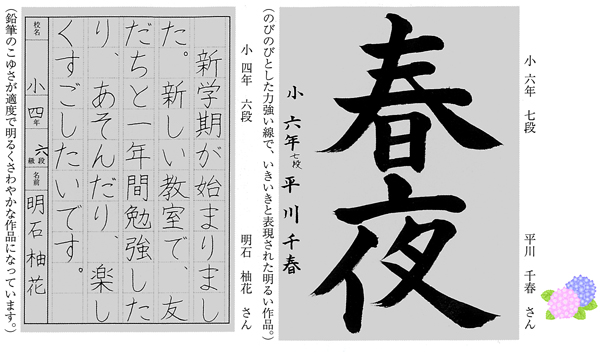 小 六年 七段
平川 千春 さん
春夜
小 六年 七段 平川千春
(のびのびとした力強い線で、いきいきと表現された明るい作品。)
小 四年 六段
明石 柚花 さん
新学期が始まりまし
た。新しい教室で、友
だちと一年間勉強した
り、あそんだり、楽し
くすごしたいです。
校名
小 四年
六段
級
名前
明石 柚花
(鉛筆のこゆさが適度で明るくさわやかな作品になっています。)